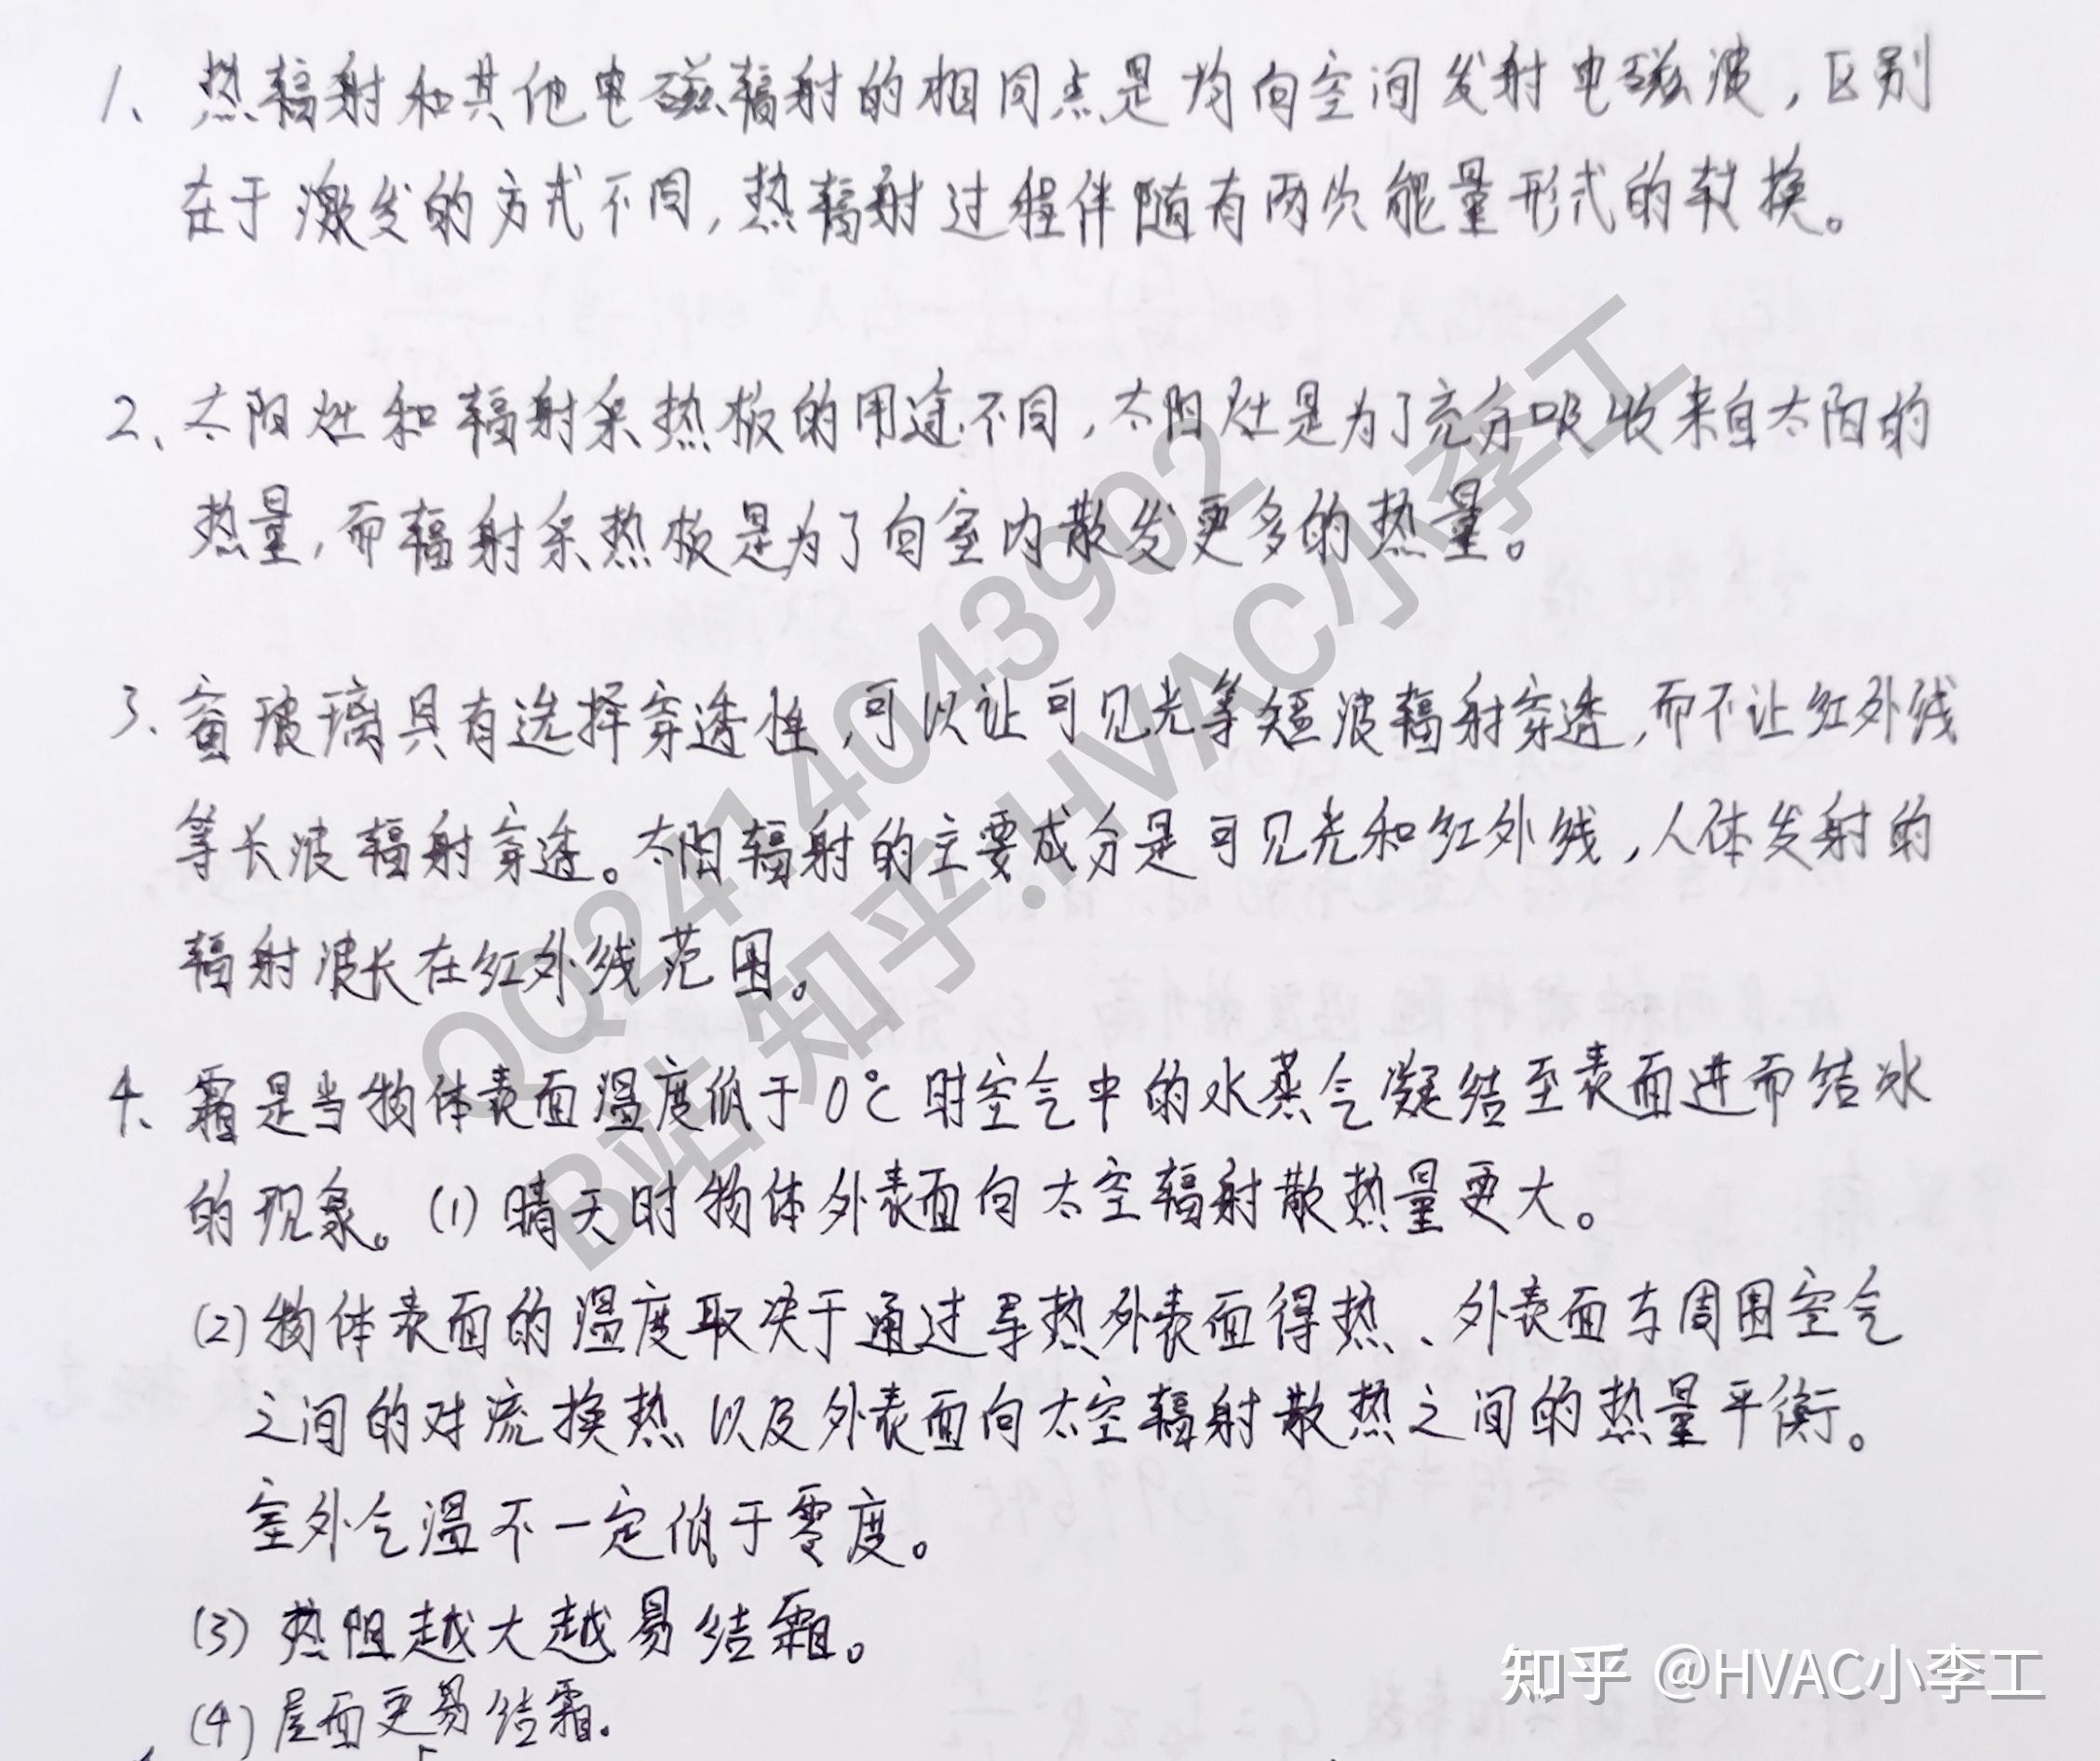 1、热辐射和其他电磁辐射的相同点是均向空间发射电磁波，区别
在于激发的方式不同，热辐射过程伴随有两次能量形式的转换。
2、太阳灶和辐射采热板的用途不同，太阳灶是为了充分吸收来自太阳的
热量，而辐射采热板是为了向室内散发更多的热量。
3、窗玻璃具有选择穿透性，可以让可见光等短波辐射穿透，而不让红外线
等长波辐射穿透。太阳辐射的主要成分是可见光和红外线，人体发射的
辐射波长在红外线范围。
4、霜是当物体表面温度低于0℃时空气中的水蒸气凝结至表面进而结冰
的现象。(1) 晴天时物体外表面向太空辐射散热量更大。
(2) 物体表面的温度取决于通过导热外表面得热、外表面与周围空气
之间的对流换热以及外表面向太空辐射散热之间的热量平衡。
室外气温不一定低于零度。
(3) 热阻越大越易结霜。
(4) 屋面更易结霜.
QQ2471404043902
B站 知乎.HVAC小李工
知乎 @HVAC小李工